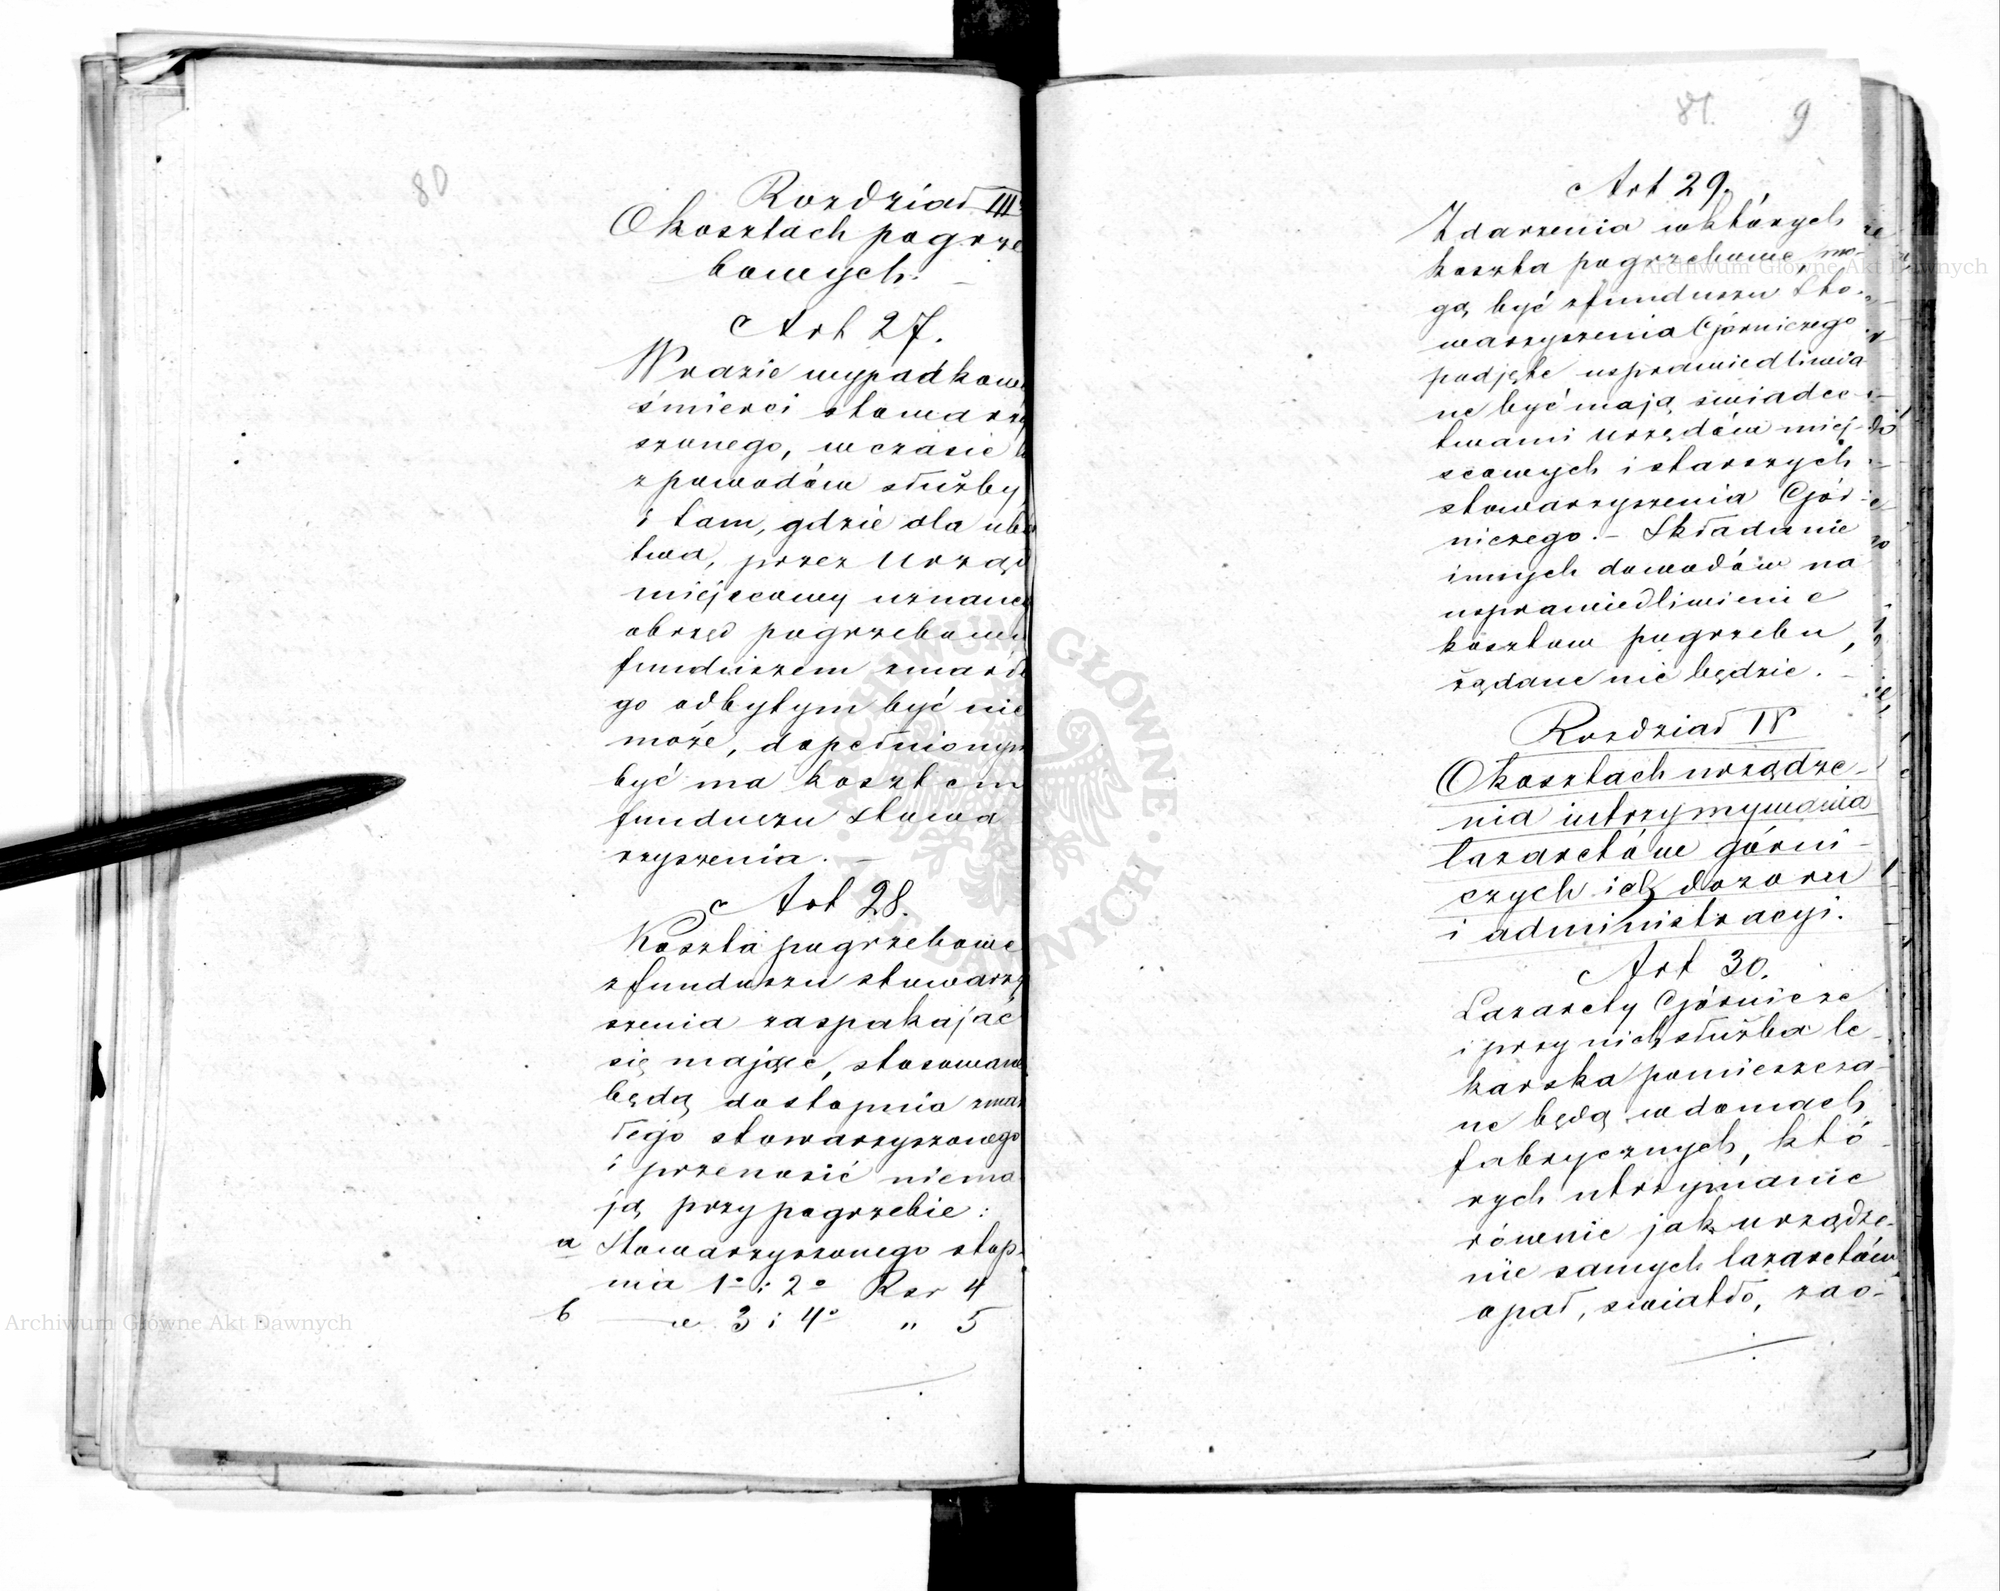 80
Rozdział III
O kosztach pogrze
bowych. –
Art 27.
W razie wypadkow
śmierci stowarzy
szonego, w czasie
z powodów służby
i tam, gdzie dla ubó
twa, przez Urząd
miejscowy uznane
obrzęd pogrzebowy
funduszem zmarłe
go odbytym być nie
może, dopełnionym
być ma kosztem
funduszu Stowa
rzyszenia. –
Art 28.
Koszta pogrzebowe
z funduszu stowarzy
szenia zaspakajać
się mające, stosowane
będą do stopnia zmar
łego stowarzyszonego
i przenosić niema
ją przy pogrzebie:
a Stowarzyszonego stop-
nia 1o i 2o Rsr 4
b — „ 3 i 4o „ 5
81. 9
Art 29.
Zdarzenia w których
koszta pogrzebowe, mo-
gą być z funduszu Sto-
warzyszenia Górniczego
podjęte usprawiedliwia
ne być mają świadec-
twami Urzędów miej-
scowych i starszych
stowarzyszenia Gór-
niczego. – Składanie
innych dowodów na
usprawiedliwienie
kosztów pogrzebu,
żądane nie będzie. –
Rozdział IV
O kosztach urządze-
nia i utrzymywania
lazaretów górni-
czych ich dozoru
i administracyi.
Art 30.
Lazarety Górnicze
i przy nich służba le-
karska pomieszcza-
ne będą w domach
fabrycznych, któ-
rych utrzymanie
równie jak urządze-
nie samych lazaretów
opał, światło, zao-
Archiwum Główne Akt Dawnych
Archiwum Główne Akt Dawnych
ARCHIWUM GŁÓWNE AKT DAWNYCH